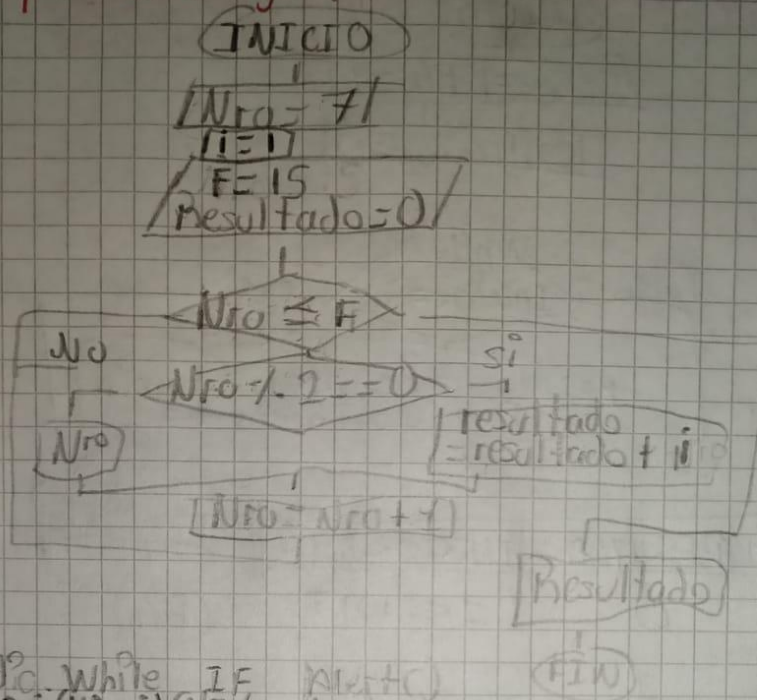 INICIO
Nro = 7
i = 1
F = 15
Resultado = 0
Nro ≤ F
No
Si
Nro % 2 == 0
resultado
Nro
= resultado + i
Nro = Nro + 1
Resultado
FIN
While IF